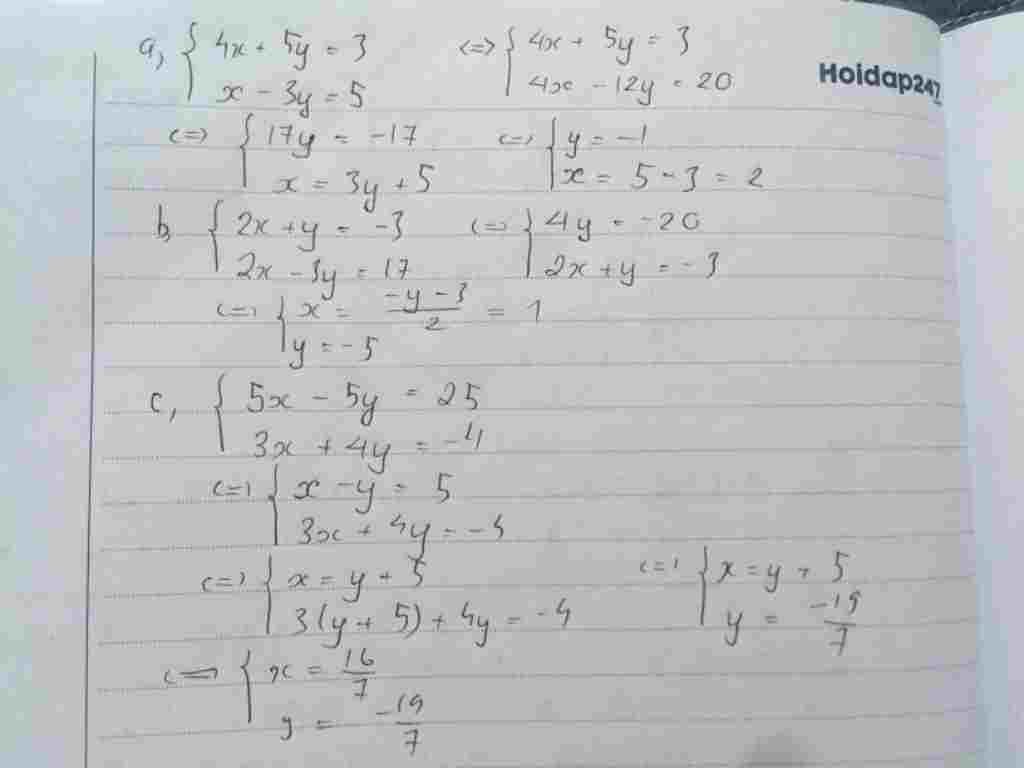 a, { 4x + 5y = 3 <=> { 4x + 5y = 3
x - 3y = 5 4x - 12y = 20
Hoidap247
<=> { 17y = -17 <=> { y = -1
x = 3y + 5 x = 5 - 3 = 2
b, { 2x + y = -3 <=> { 4y = -20
2x - 3y = 17 2x + y = -3
<=> { x = (-y - 3)/2 = 1
y = -5
c, { 5x - 5y = 25
3x + 4y = -4
<=> { x - y = 5
3x + 4y = -4
<=> { x = y + 5 <=> { x = y + 5
3(y + 5) + 4y = -4 y = -19/7
<=> { x = 16/7
y = -19/7